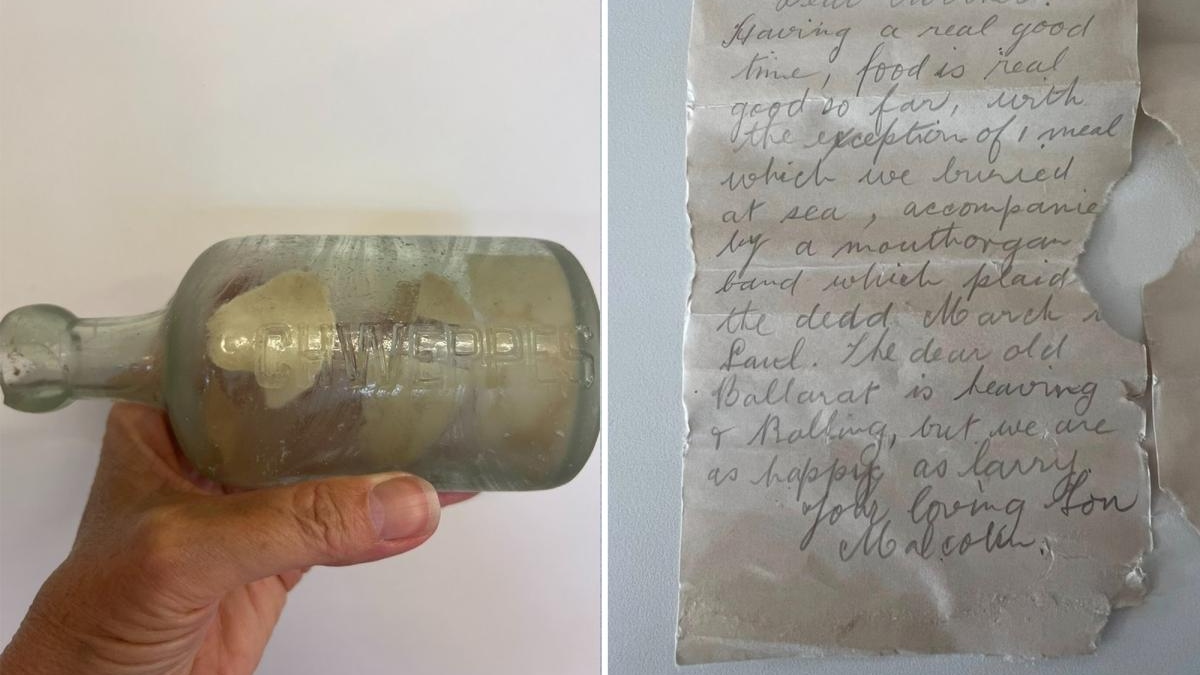 SCHWEPPES
Having a real good
time, food is real
good so far, with
the exception of 1 meal
which we buried
at sea, accompanie
by a mouthorgan
band which plaid
the dedd March
Saul. The dear old
Ballarat is heaving
& Rolling, but we are
as happy as larry.
Your loving Son
Malcolm.